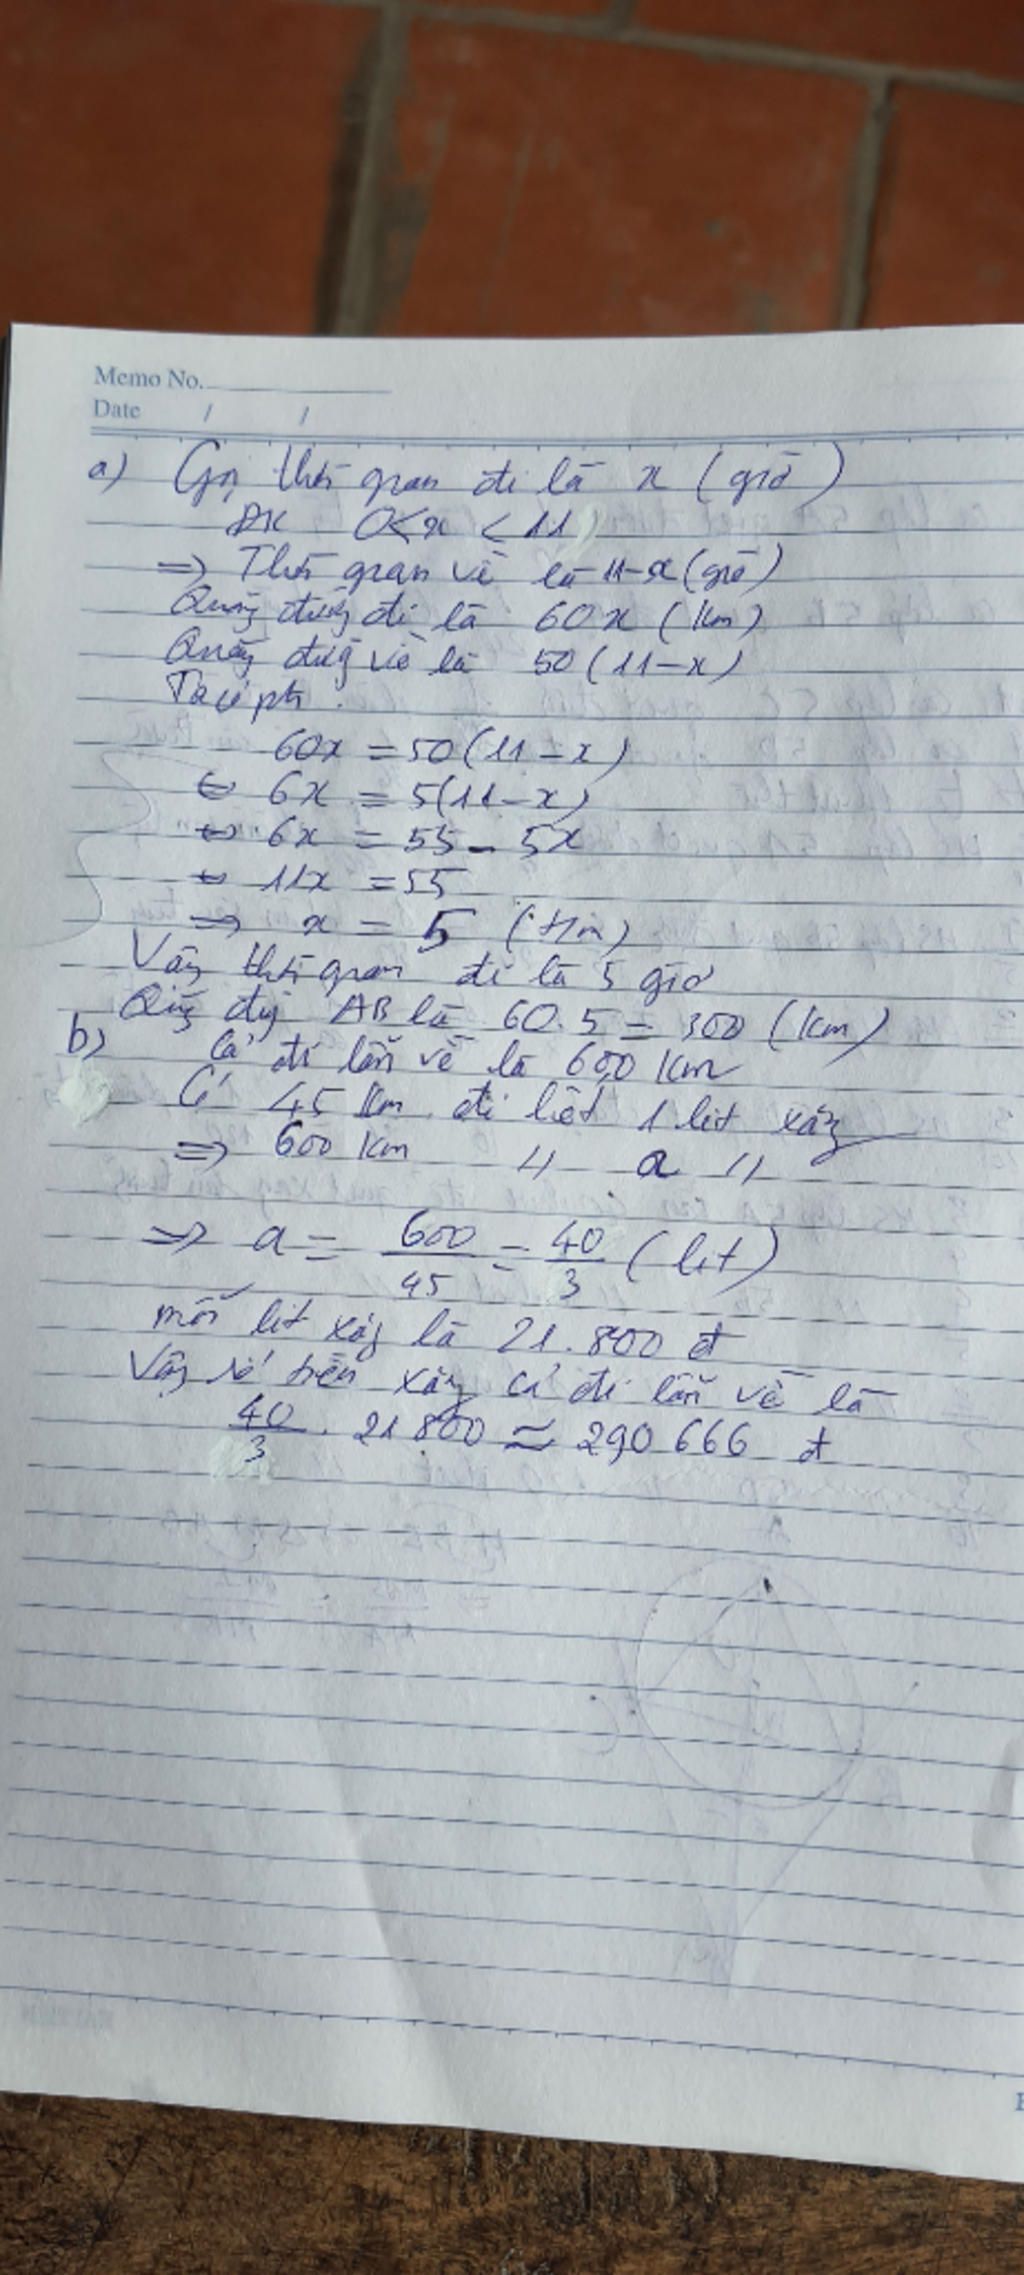 Memo No.
Date / /
a) Gọi thời gian đi là x (giờ)
ĐK 0<x<11
=> Thời gian về là 11-x (giờ)
Quãng đường đi là 60x (km)
Quãng đường về là 50(11-x)
Ta có pt:
60x = 50(11-x)
⇔ 6x = 5(11-x)
⇔ 6x = 55 - 5x
⇔ 11x = 55
=> x = 5 (t/m)
Vậy thời gian đi là 5 giờ
Quãng đường AB là 60.5 = 300 (km)
b) Cả đi lẫn về là 600 km
Cứ 45 km đi hết 1 lit xăng
=> 600 km " a "
=> a = 600/45 = 40/3 (lit)
mỗi lit xăng là 21.800 đ
Vậy số tiền xăng cả đi lẫn về là
40/3 . 21 800 ≈ 290 666 đ